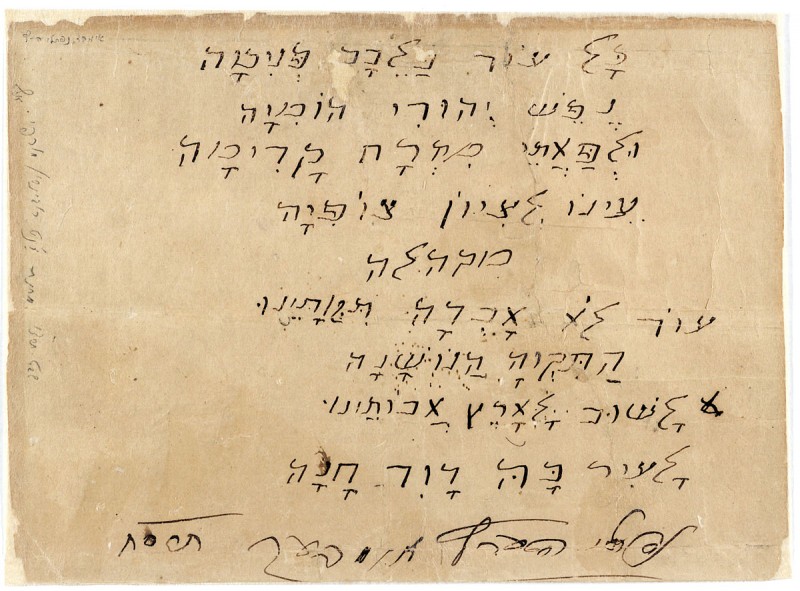 אימבר, נפתלי הרץ
כָל עוֹד בַלֵבָב פְּנִימָה
נֶפֶשׁ יְהוּדִי הוֹמִיָה
וּלְפַאֲתֵי מִזְרָח קָדִימָה
עֵינוֹ לְצִיוֹן צוֹפִיָה
מקהלה
עוֹד לֹא אָבְדָה תִּקְוָתֵינוּ
הַתִּקְוָה הַנוֹשָׁנָה
לָשׁוּב לְאָרֶץ אֲבוֹתֵינוּ
לָעִיר בָּהּ דָוִד חָנָה
נפתלי הערץ אימבער תרסח